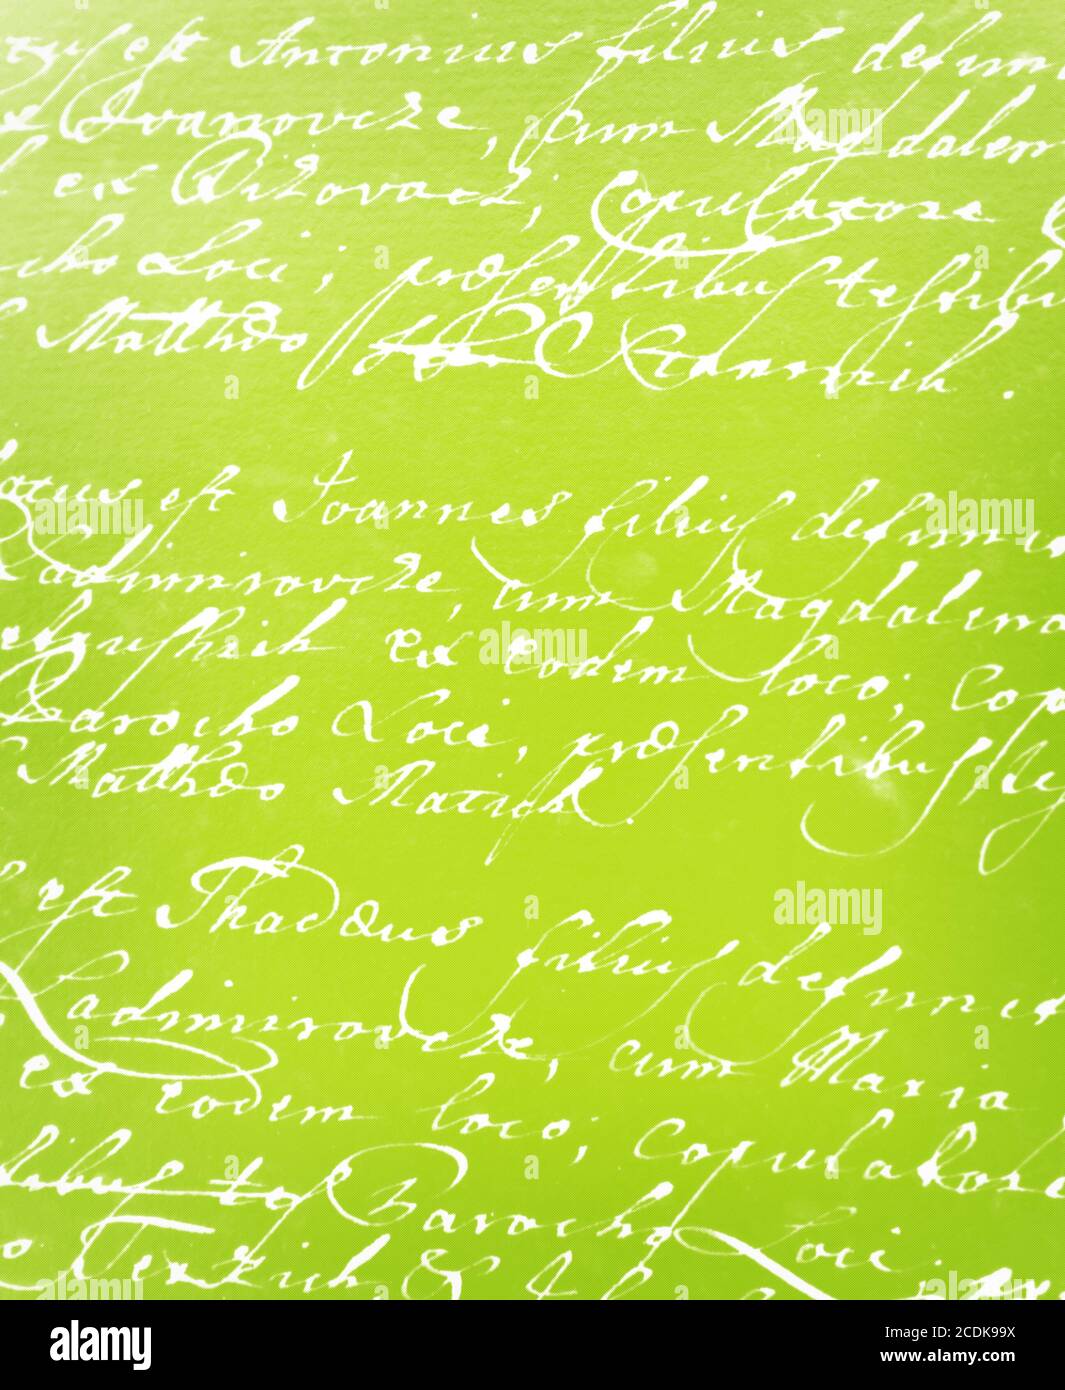 est Antonius filius defun
Ivanovcze, cum Magdalen
ex Pizovacz, Copulatore
cho Loci; præsentibus testibu
Mattheo
atus est Joannes filius defunct
Ladimirovcze, cum Magdalena
ex eodem loco; Cop
Parocho Loci, præsentibus te
Mattheo Matisk.
est Thadæus filius defunct
Ladimirovcze, cum Maria
ex eodem loco; Copulatore
tibus tes Parocho Loci
o Terzich &
alamy
Image ID: 2CDK99X
www.alamy.com